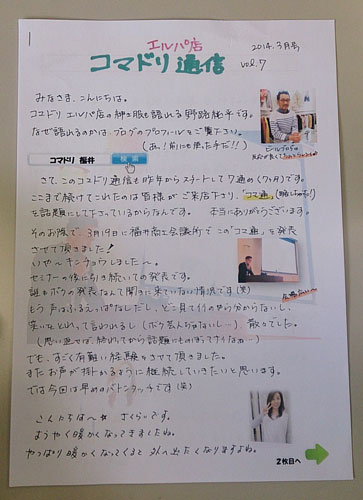 エルパ店
コマドリ通信
2014.3月号
vol.7
みなさま、こんにちは。
コマドリ エルパ店の紳士服を語れる野路純平です。
なぜ語れるのかは、ブログのプロフィールをご覧下さい。
(あ、!前にも使った手だ!!)
コマドリ 福井 検索
さて、このコマドリ通信も昨年からスタートして7通め(7ヶ月)です。
ここまで続けてこれたのは皆様がご来店下さり、「コマ通」
を話題にして下さっているからなんです。 本当にありがとうございます。
そのお陰で、3月19日に福井商工会議所でこの"コマ通"を発表
させて頂きました!
いや〜キンチョウしました〜。
セミナーの後に引き続いての発表です。
誰もボクの発表なんて聞きに来ていない情況です(笑)
もう声はふるえっぱなしだし、どこ見て行のやら分からないし、
笑いをとれって言われるし(ボク芸人ぢゃないし…)、散々でした。
でも、すごく有難い経験をさせて頂きました。
またお声が掛かるように継続していきたいと思います。
では今回は早めのバトンタッチです(笑)
こんにちは〜☆ さくらいです。
ようやく暖かくなってきましたね。
やっぱり暖かくなってくると外に出たくなりますよね。
2枚目へ